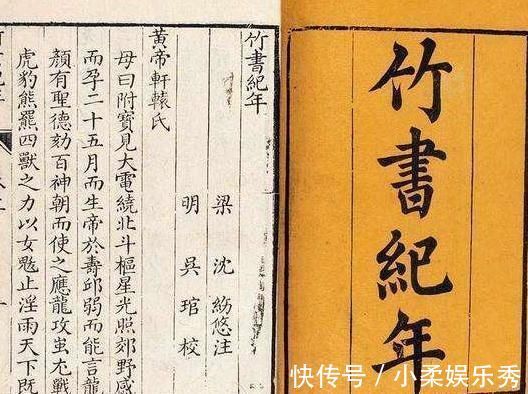 竹書紀年
竹書紀年
梁 沈 注
明 吳琯校
黃帝軒轅氏
母曰附寶見大電繞北斗樞星光照郊野感
而孕二十五月而生帝於壽邱弱而能言龍
顏有聖德劾百神朝而使之應龍攻蚩尤戰
虎豹熊羆四獸之力以女魃止淫雨天下既
快传号/小柔娱乐秀